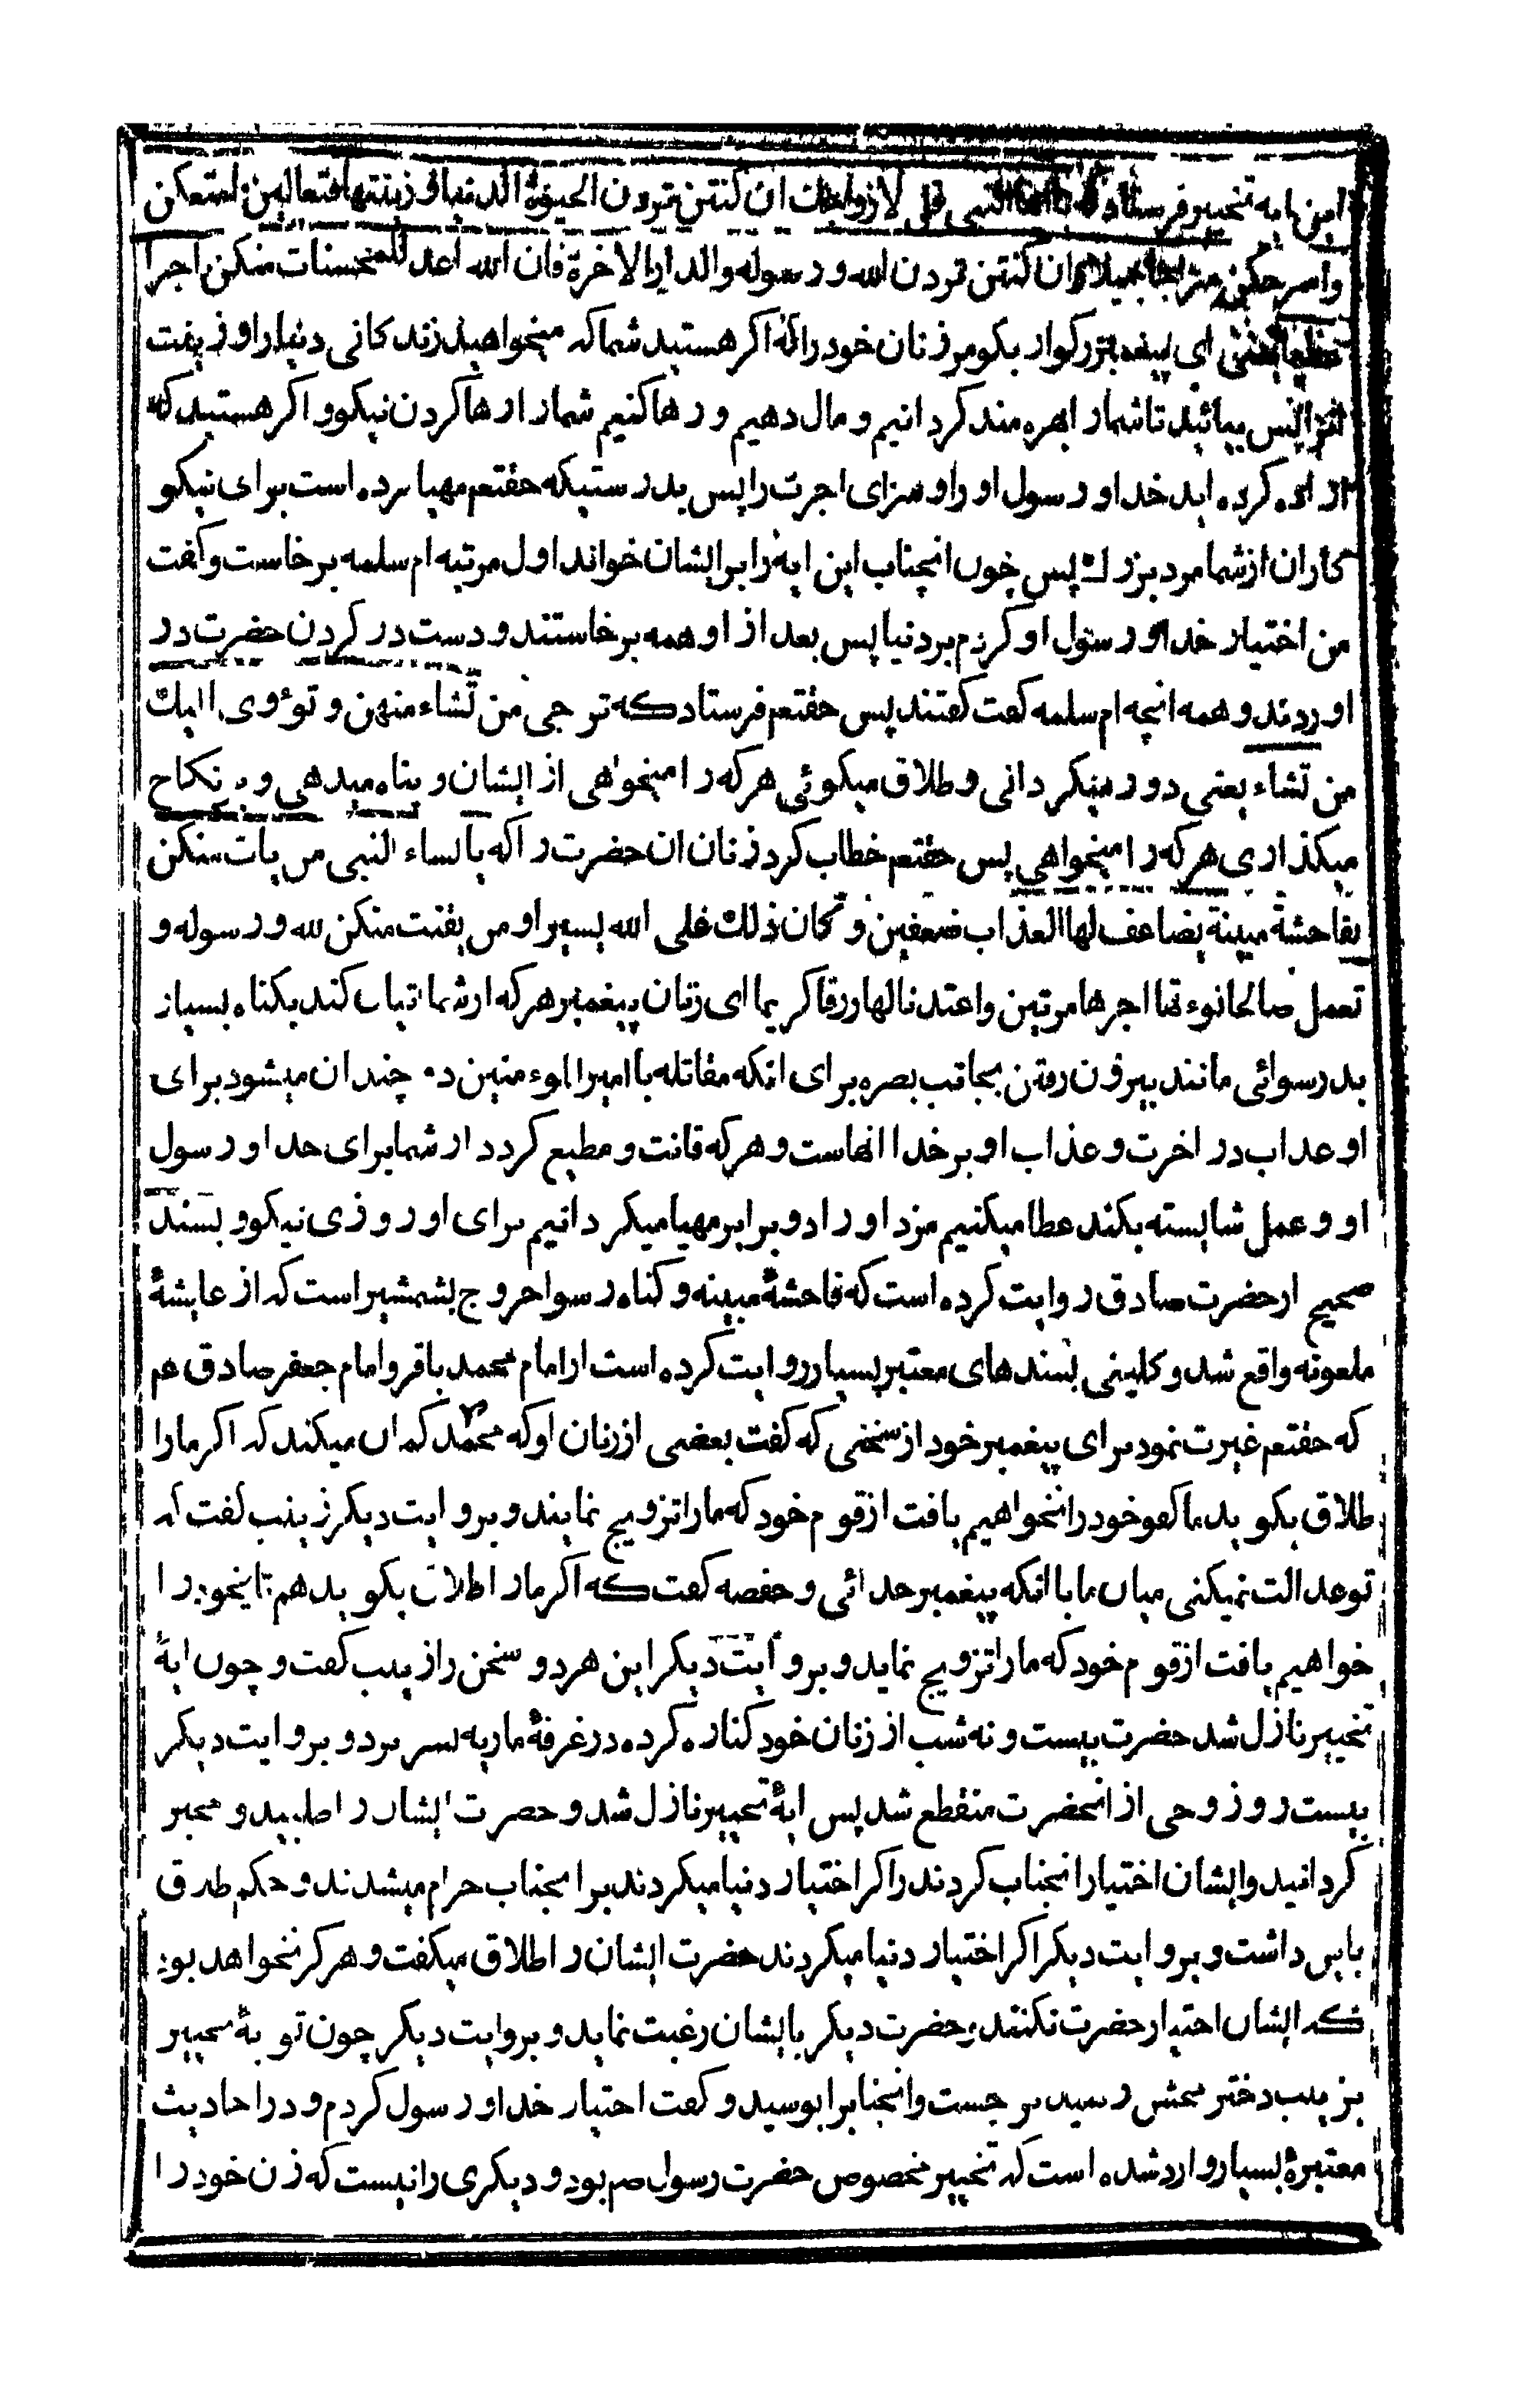 این ایه تخییر فرستاد که یا ایها النبی قل لازواجك ان کنتن تردن الحیوة الدنیا و زینتها فتعالین امتعکن
و اسرحکن سراحا جمیلا و ان کنتن تردن الله و رسوله والدار الاخرة فان الله اعد للمحسنات منکن اجرا
عظیما یعنی ای پیغمبر بزرکوار بکو مر زنان خود را که اکر هستید شما که میخواهید زندکانی دنیا را و زینت
انرا پس بیائید تا شما را بهره مند کردانیم و مال دهیم و رها کنیم شما را رها کردن نیکو و اکر هستید که
اراده کرده اید خدا و رسول او را و سزای اخرت را پس بدرستیکه حقتعم مهیا کرده است برای نیکو
کاران از شما مزد بزرك پس چون انجناب این ایه را بر ایشان خواند اول مرتبه ام سلمه برخاست و کفت
من اختیار خدا و رسول او کردم بر دنیا پس بعد از او همه برخاستند و دست در کردن حضرت در
اوردند و همه انچه ام سلمه کفت کفتند پس حقتعم فرستاد که ترجی من تشاء منهن و تؤوی الیك
من تشاء یعنی دور میکردانی و طلاق میکوئی هر که را میخواهی از ایشان و پناه میدهی و به نکاح
میکذاری هر که را میخواهی پس حقتعم خطاب کرد زنان ان حضرت را که یا نساء النبی من یات منکن
بفاحشة مبینة یضاعف لها العذاب ضعفین و کان ذلك علی الله یسیرا و من یقنت منکن لله و رسوله و
تعمل صالحا نوءتها اجرها مرتین و اعتدنا لها رزقا کریما ای زنان پیغمبر هر که از شما اتیان کند بکناه بسیار
بد رسوائی مانند بیرون رفتن بجانب بصره برای انکه مقاتله با امیرالموءمنین دو چندان میشود برای
او عذاب در اخرت و عذاب او بر خدا اسانست و هر که قانت و مطیع کردد از شما برای خدا و رسول
او و عمل شایسته بکند عطا میکنیم مزد او را دو برابر مهیا میکردانیم برای او روزی نیکو و بسند
صحیح از حضرت صادق روایت کرده است که فاحشۀ مبینه و کناه رسوا خروج بشمشیر است که از عایشۀ
ملعونه واقع شد و کلینی بسندهای معتبر بسیار روایت کرده است از امام محمد باقر و امام جعفر صادق عم
که حقتعم غیرت نمود برای پیغمبر خود از سخنی که کفت بعضی از زنان او که محمد ص کمان میکند که اکر ما را
طلاق بکوید ما کفو خود را نخواهیم یافت از قوم خود که ما را تزویج نمایند و بروایت دیکر زینب کفت که
تو عدالت نمیکنی میان ما با انکه پیغمبر خدائی و حفصه کفت که اکر ما را طلاق بکوید همتای خود را
خواهیم یافت از قوم خود که ما را تزویج نماید و بروایت دیکر این هر دو سخن را زینب کفت و چون ایۀ
تخییر نازل شد حضرت بیست و نه شب از زنان خود کناره کرده در غرفۀ ماریه بسر برد و بروایت دیکر
بیست روز وحی از انحضرت منقطع شد پس ایۀ تخییر نازل شد و حضرت ایشان را طلبید و مخیر
کردانید و ایشان اختیار انجناب کردند و اکر اختیار دنیا میکردند بر انجناب حرام میشدند و حکم طلاق
باین داشت و بروایت دیکر اکر اختیار دنیا میکردند حضرت ایشان را طلاق میکفت و هرکز نخواهد بود
که ایشان اختیار حضرت نکنند و حضرت دیکر بایشان رغبت نماید و بروایت دیکر چون نوبۀ تخییر
بزینب دختر جحش رسید بر جست و انجناب را بوسید و کفت اختیار خدا و رسول کردم و در احادیث
معتبرۀ بسیار وارد شده است که تخییر مخصوص حضرت رسول صم بود و دیکری را نیست که زن خود را